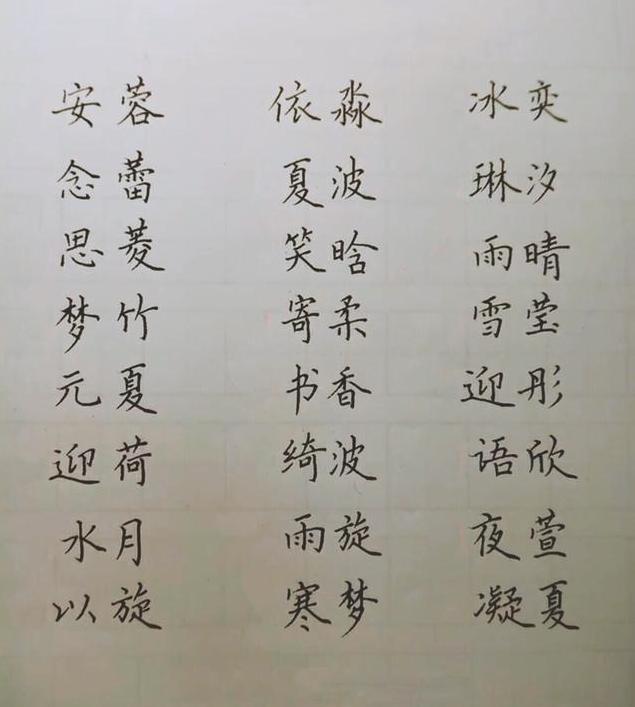 安蓉 依淼 冰奕
念蕾 夏波 琳汐
思菱 笑晗 雨晴
梦竹 寄柔 雪莹
元夏 书香 迎彤
迎荷 绮波 语欣
水月 雨旋 夜萱
以旋 寒梦 凝夏